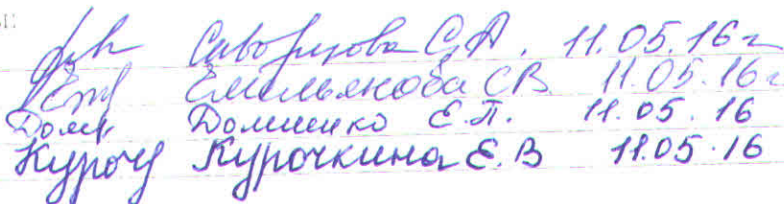 Саворцова С.А. 11.05.16г
Емельянова С.В. 11.05.16г
Доменко Е.П. 11.05.16
Куроч Курочкина Е.В 11.05.16